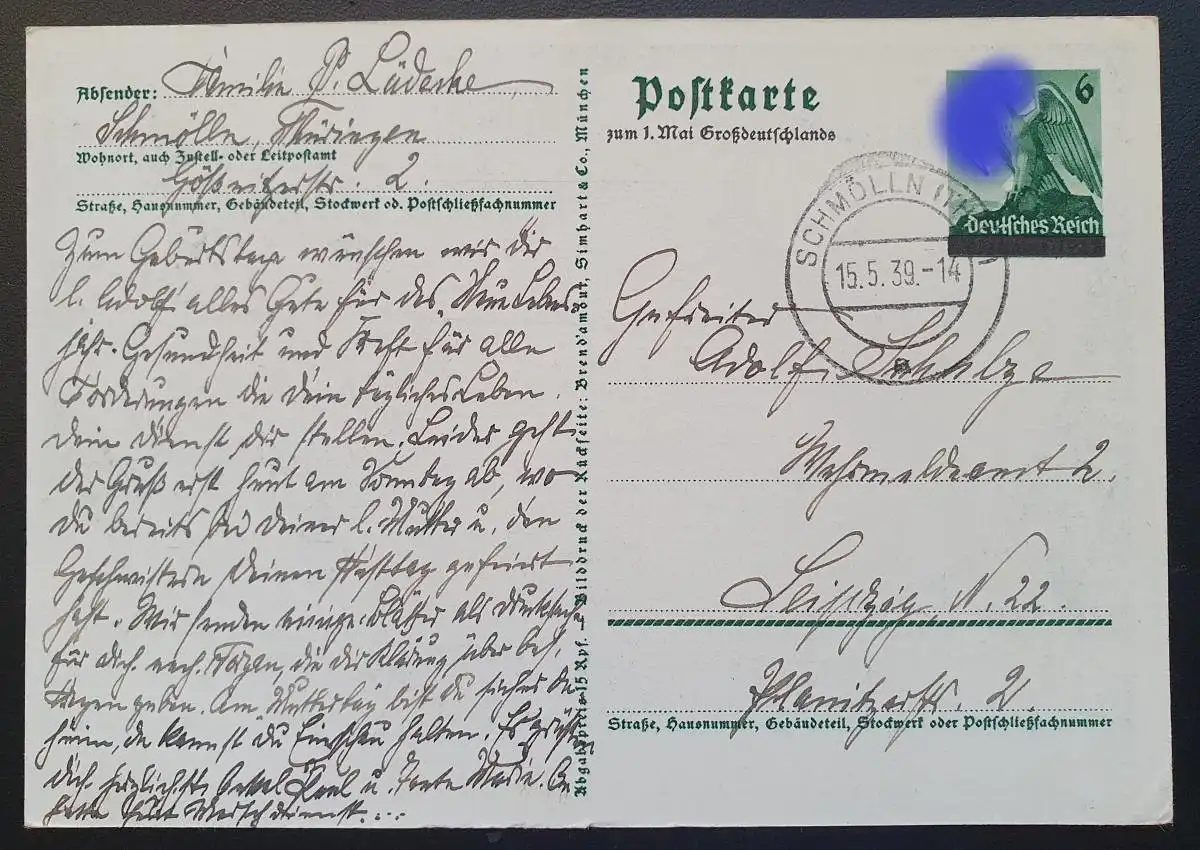 Absender: Familie P. Lüdecke
Schmölln, Thüringen
Wohnort, auch Zustell- oder Leitpostamt
Gößnitzerstr. 2.
Straße, Hausnummer, Gebäudeteil, Stockwerk od. Postschließfachnummer
Zum Geburtstage wünschen wir dir
l. Adolf alles Gute für das Neue Lebens-
jahr. Gesundheit und Kraft für alle
Forderungen die dein tägliches Leben.
dein Dienst dir stellen. Leider geht
der Gruß erst heut am Sonntag ab, wo
du bereits bei deiner l. Mutter u. den
Geschwistern deinen Festtag gefeiert
hast. Wir senden einige Blätter als Drucksache
für dich nach, die dir Klärung über
geben. Am Muttertag bist du sicher da-
heim, da kannst du Einschau halten. Es grüßen
dich herzlichst Onkel Paul u. Tante Marie.
hatte heut
Abgabepreis 15 Rpf. Bilddruck der Rückseite: Brend'amour, Simhart & Co., München
Postkarte
zum 1. Mai Großdeutschlands
6
Deutsches Reich
SCHMÖLLN
15.5.39.-14
Gefreiter
Adolf Schulze
Wehrmeldeamt 2.
Leipzig N. 22.
Planitzerstr. 2.
Straße, Hausnummer, Gebäudeteil, Stockwerk oder Postschließfachnummer